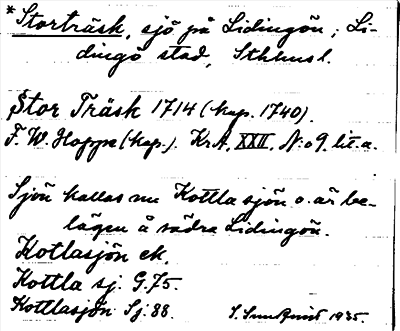 *Storträsk, sjö på Lidingön; Li-
dingö stad, Sthlms l.
Stor Träsk 1714 (kop. 1740).
F. W. Hoppe (kop.). KrA, XXII, N:o 9, lit. a.
Sjön kallas nu Kottla sjön o. är be-
lägen å södra Lidingön.
Kotlasjön ek.
Kottla sj. G.75.
Kottlasjön Sj. 88.
S. Sundqvist 1935.